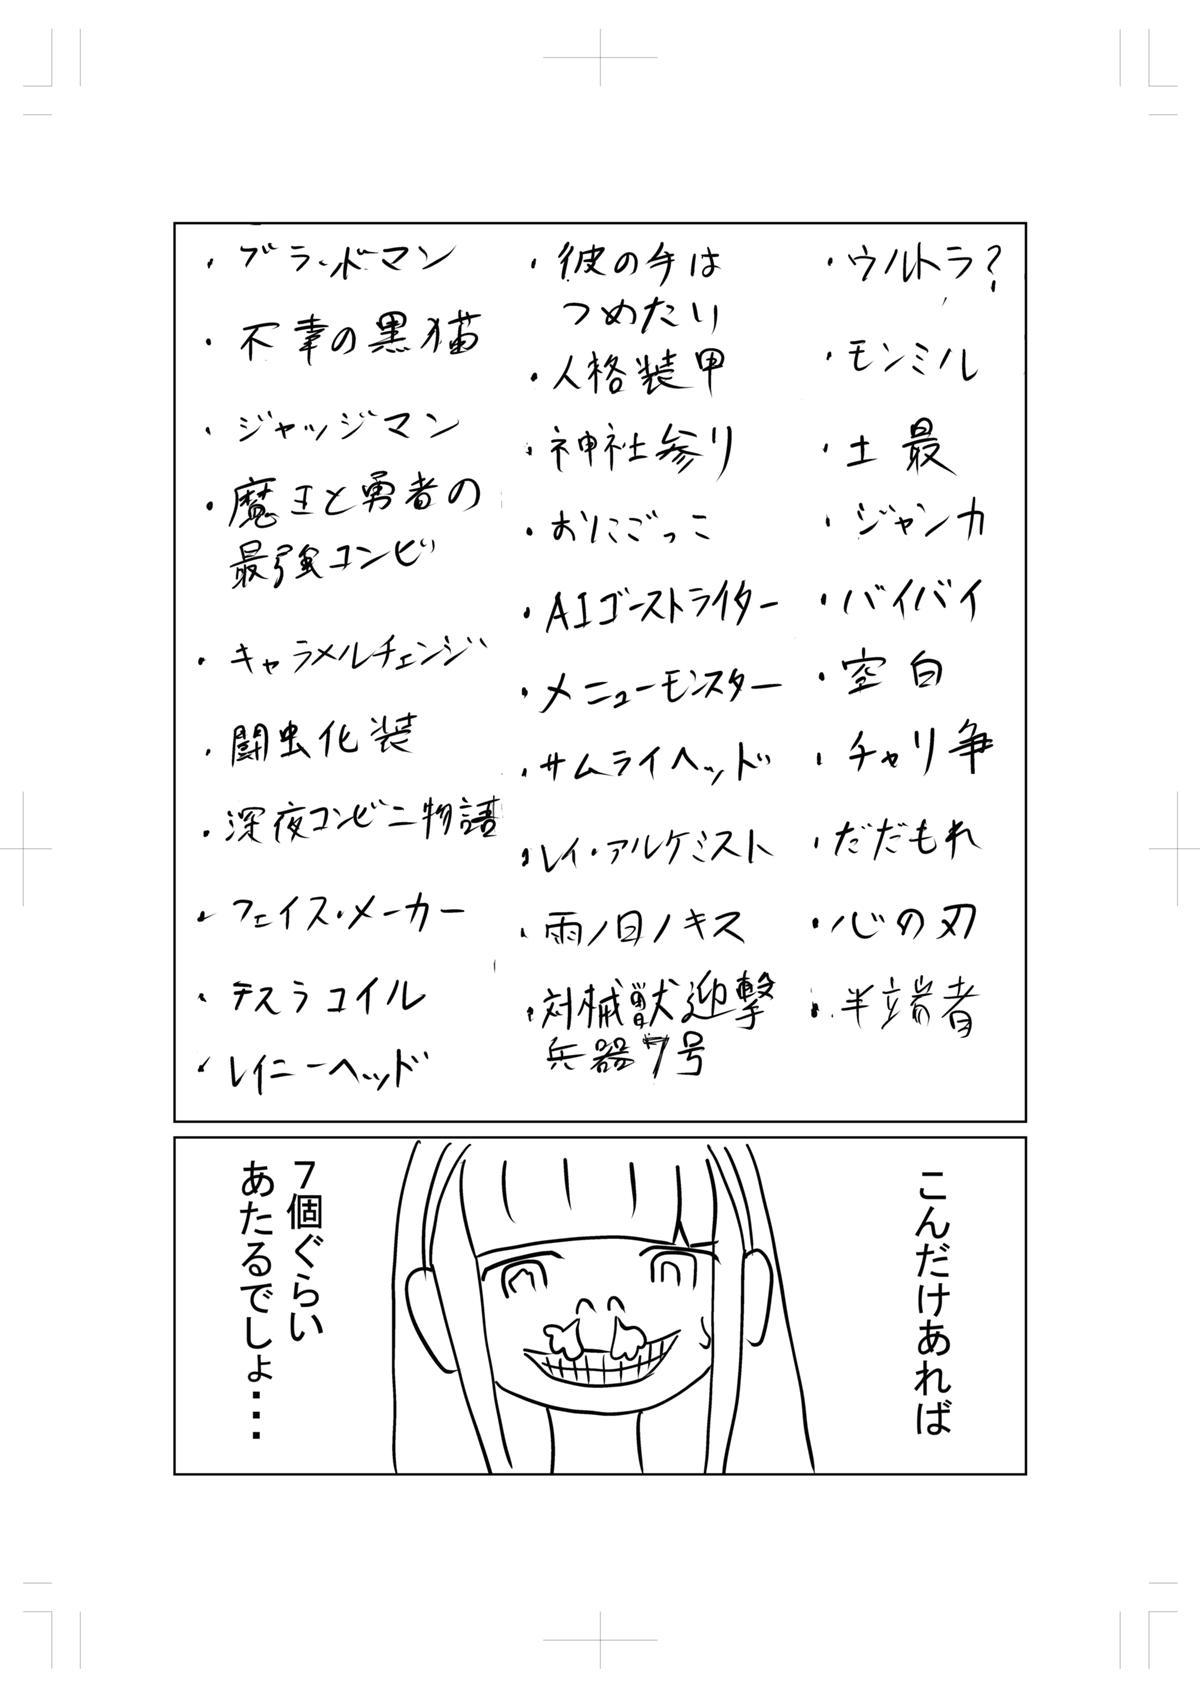 ・ブラッドマン
・不幸の黒猫
・ジャッジマン
・魔王と勇者の
最強コンビ
・キャラメルチェンジ
・闘虫化装
・深夜コンビニ物語
・フェイス・メーカー
・テスラコイル
・レイニーヘッド
・彼の手は
つめたい
・人格装甲
・神社参り
・おにごっこ
・AIゴーストライター
・メニューモンスター
・サムライヘッド
・レイ・アルケミスト
・雨ノ日ノキス
・対械獣迎撃
兵器7号
・ウルトラ?
・モンミル
・土最
・ジャンカ
・バイバイ
・空白
・チャリ争
・だだもれ
・心の刃
・半端者
こんだけあれば
7個ぐらい
あたるでしょ・・・